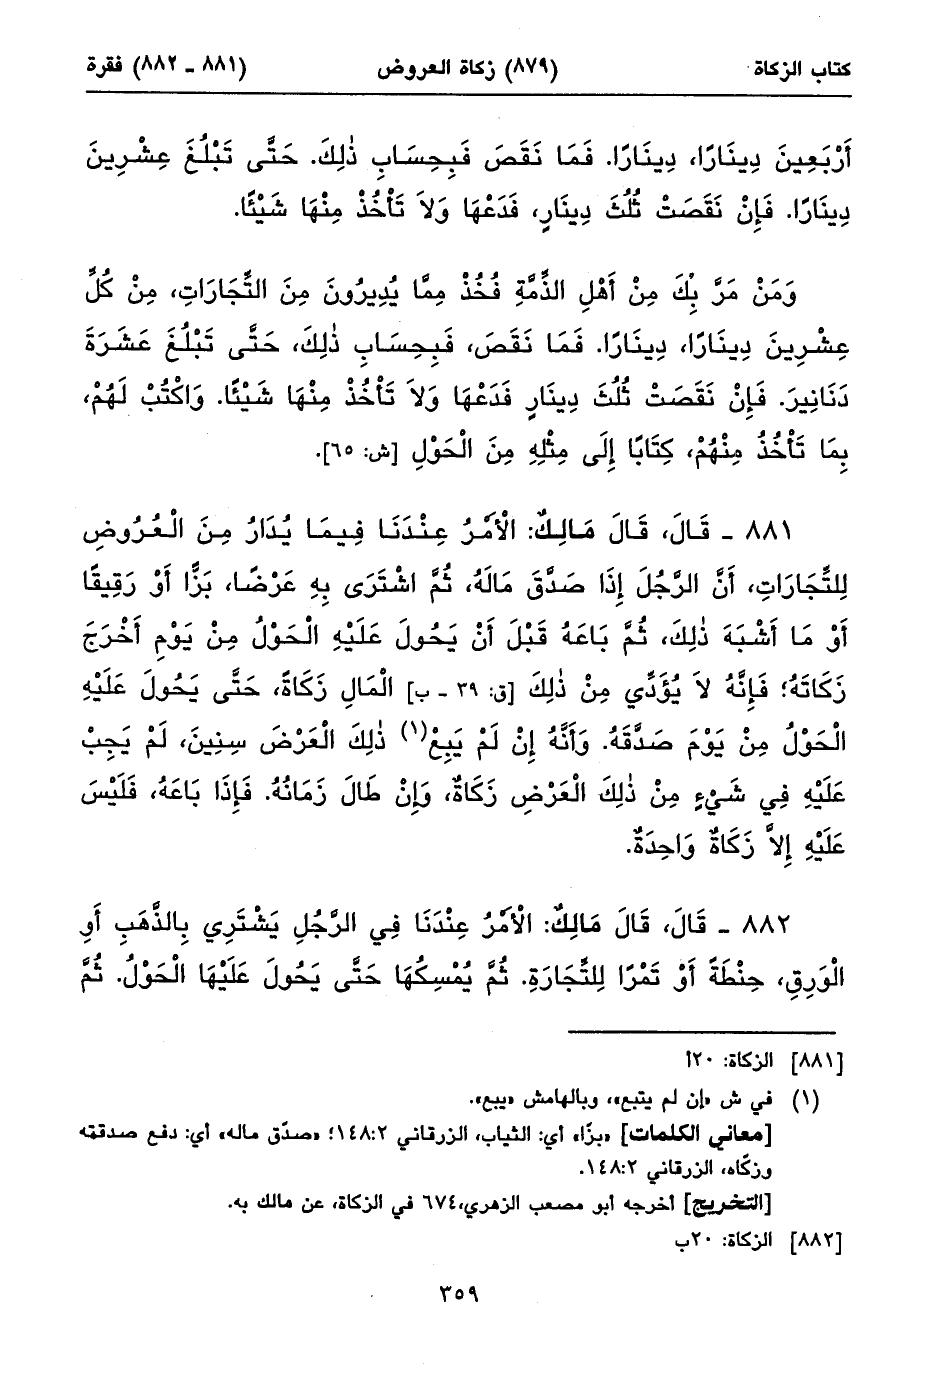 كتاب الزكاة (٨٧٩) زكاة العروض (٨٨١ ـ ٨٨٢) فقرة
أَرْبَعِينَ دِينَارًا، دِينَارًا. فَمَا نَقَصَ فَبِحِسَابِ ذٰلِكَ. حَتَّى تَبْلُغَ عِشْرِينَ
دِينَارًا. فَإِنْ نَقَصَتْ ثُلُثَ دِينَارٍ، فَدَعْهَا وَلاَ تَأْخُذْ مِنْهَا شَيْئًا.
وَمَنْ مَرَّ بِكَ مِنْ أَهْلِ الذِّمَّةِ فَخُذْ مِمَّا يُدِيرُونَ مِنَ التِّجَارَاتِ، مِنْ كُلِّ
عِشْرِينَ دِينَارًا، دِينَارًا. فَمَا نَقَصَ، فَبِحِسَابِ ذٰلِكَ، حَتَّى تَبْلُغَ عَشَرَةَ
دَنَانِيرَ. فَإِنْ نَقَصَتْ ثُلُثَ دِينَارٍ فَدَعْهَا وَلاَ تَأْخُذْ مِنْهَا شَيْئًا. وَاكْتُبْ لَهُمْ،
بِمَا تَأْخُذُ مِنْهُمْ، كِتَابًا إِلَى مِثْلِهِ مِنَ الْحَوْلِ [ش: ٦٥].
٨٨١ ـ قَالَ، قَالَ مَالِكٌ: الْأَمْرُ عِنْدَنَا فِيمَا يُدَارُ مِنَ الْعُرُوضِ
لِلتِّجَارَاتِ، أَنَّ الرَّجُلَ إِذَا صَدَّقَ مَالَهُ، ثُمَّ اشْتَرَى بِهِ عَرْضًا، بَزًّا أَوْ رَقِيقًا
أَوْ مَا أَشْبَهَ ذٰلِكَ، ثُمَّ بَاعَهُ قَبْلَ أَنْ يَحُولَ عَلَيْهِ الْحَوْلُ مِنْ يَوْمِ أَخْرَجَ
زَكَاتَهُ؛ فَإِنَّهُ لاَ يُؤَدِّي مِنْ ذٰلِكَ [ق: ٣٩ ـ ب] الْمَالِ زَكَاةً، حَتَّى يَحُولَ عَلَيْهِ
الْحَوْلُ مِنْ يَوْمَ صَدَّقَهُ. وَأَنَّهُ إِنْ لَمْ يَبِعْ(١) ذٰلِكَ الْعَرْضَ سِنِينَ، لَمْ يَجِبْ
عَلَيْهِ فِي شَيْءٍ مِنْ ذٰلِكَ الْعَرْضِ زَكَاةٌ، وَإِنْ طَالَ زَمَانُهُ. فَإِذَا بَاعَهُ، فَلَيْسَ
عَلَيْهِ إِلاَّ زَكَاةٌ وَاحِدَةٌ.
٨٨٢ ـ قَالَ، قَالَ مَالِكٌ: الْأَمْرُ عِنْدَنَا فِي الرَّجُلِ يَشْتَرِي بِالذَّهَبِ أَوِ
الْوَرِقِ، حِنْطَةً أَوْ تَمْرًا لِلتِّجَارَةِ. ثُمَّ يُمْسِكُهَا حَتَّى يَحُولَ عَلَيْهَا الْحَوْلُ. ثُمَّ
[٨٨١] الزكاة: ٢٠أ
(١) في ش «إن لم يتبع»، وبالهامش «يبع».
[معاني الكلمات] «بزًا» أي: الثياب، الزرقاني ٢:١٤٨؛ «صدّق ماله» أي: دفع صدقته
وزكّاه، الزرقاني ٢:١٤٨.
[التخريج] أخرجه أبو مصعب الزهري،٦٧٤ في الزكاة، عن مالك به.
[٨٨٢] الزكاة: ٢٠ب
٣٥٩